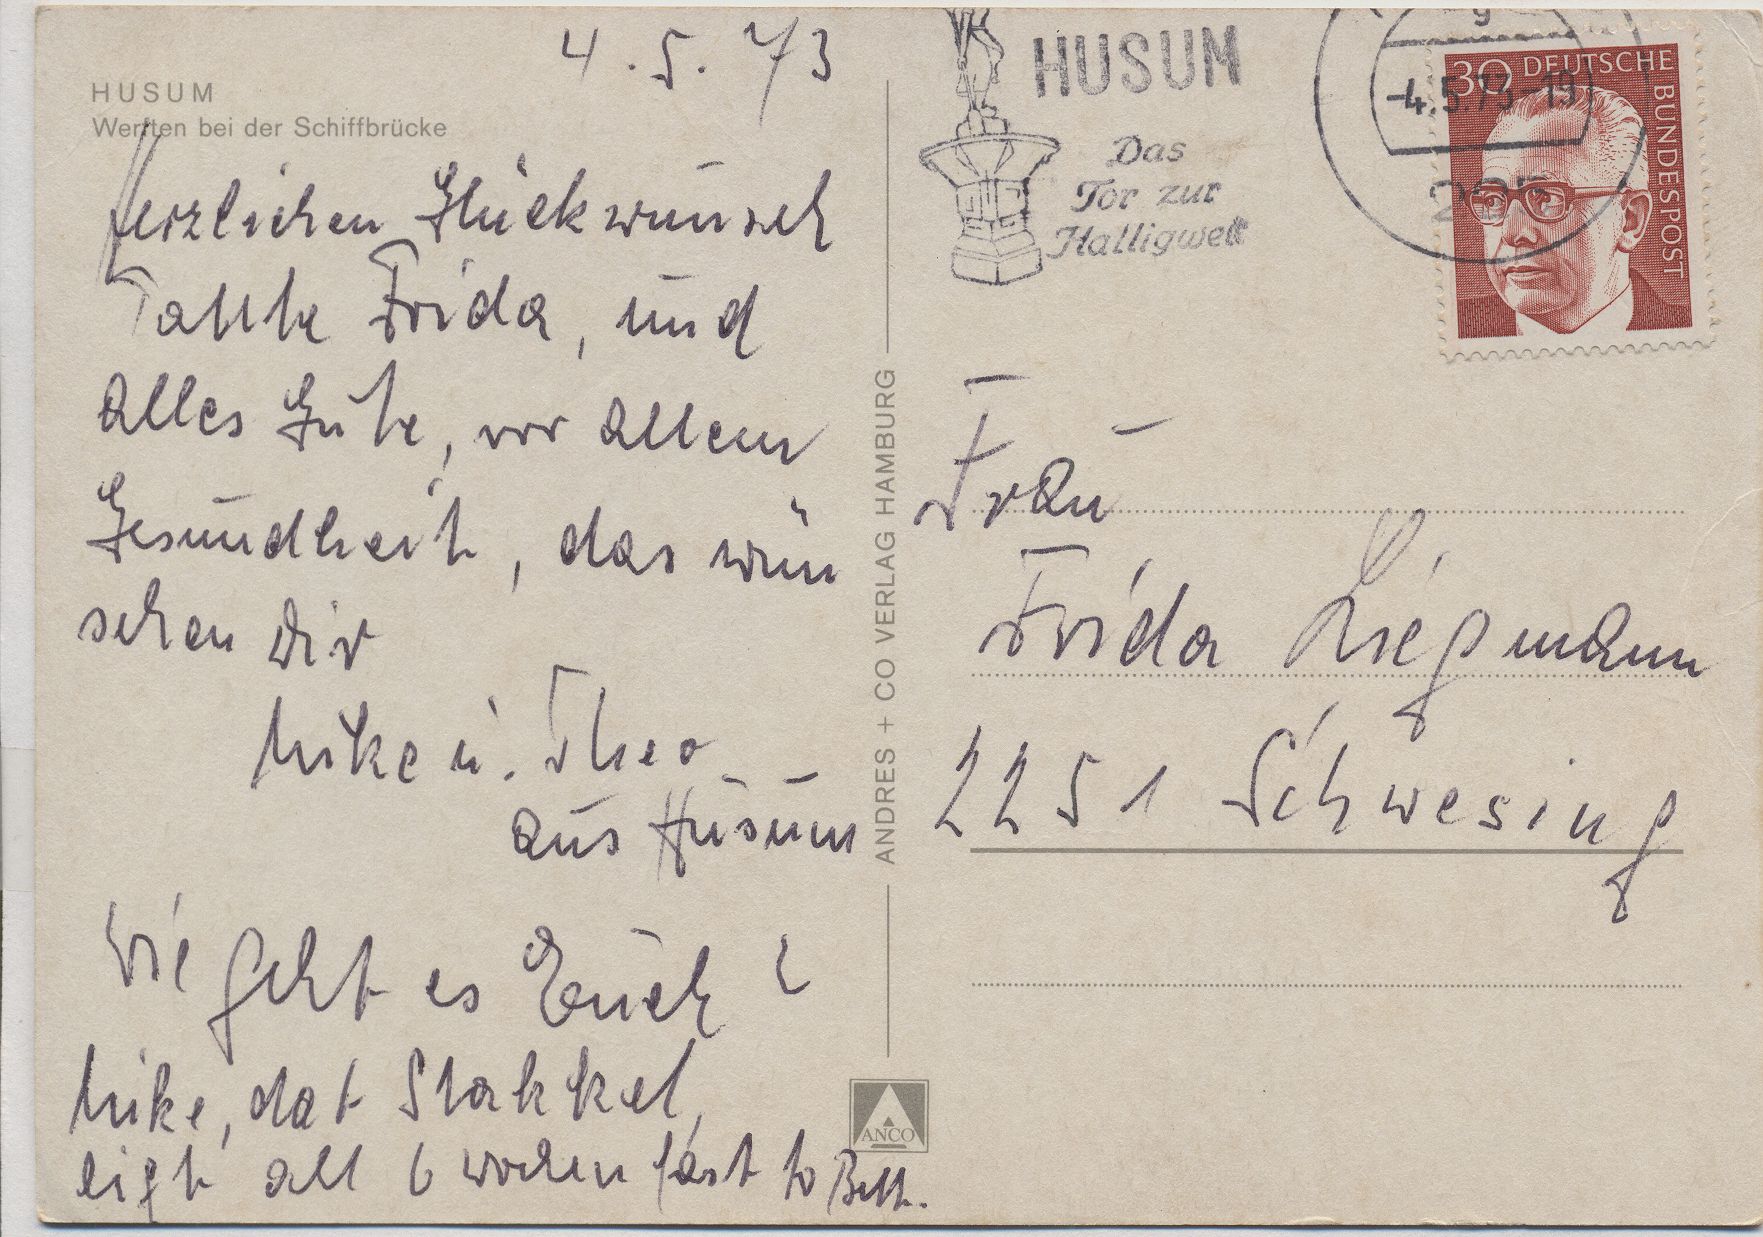 4.5.73
HUSUM
Werften bei der Schiffbrücke
Herzlichen Glückwunsch
Tante Frida, und
alles Gute, vor allem
Gesundheit, das wün
schen Dir
Mike u. Theo
aus Husum
Wie geht es Euch?
Mike, dat Stakkel,
ligt all 6 wochen fast to Bett.
ANDRES + CO VERLAG HAMBURG
ANCO
HUSUM
Das
Tor zur
Halligwelt
-4.5.73-19
30 DEUTSCHE
BUNDESPOST
Frau
Frida Liegmann
2251 Schwesing